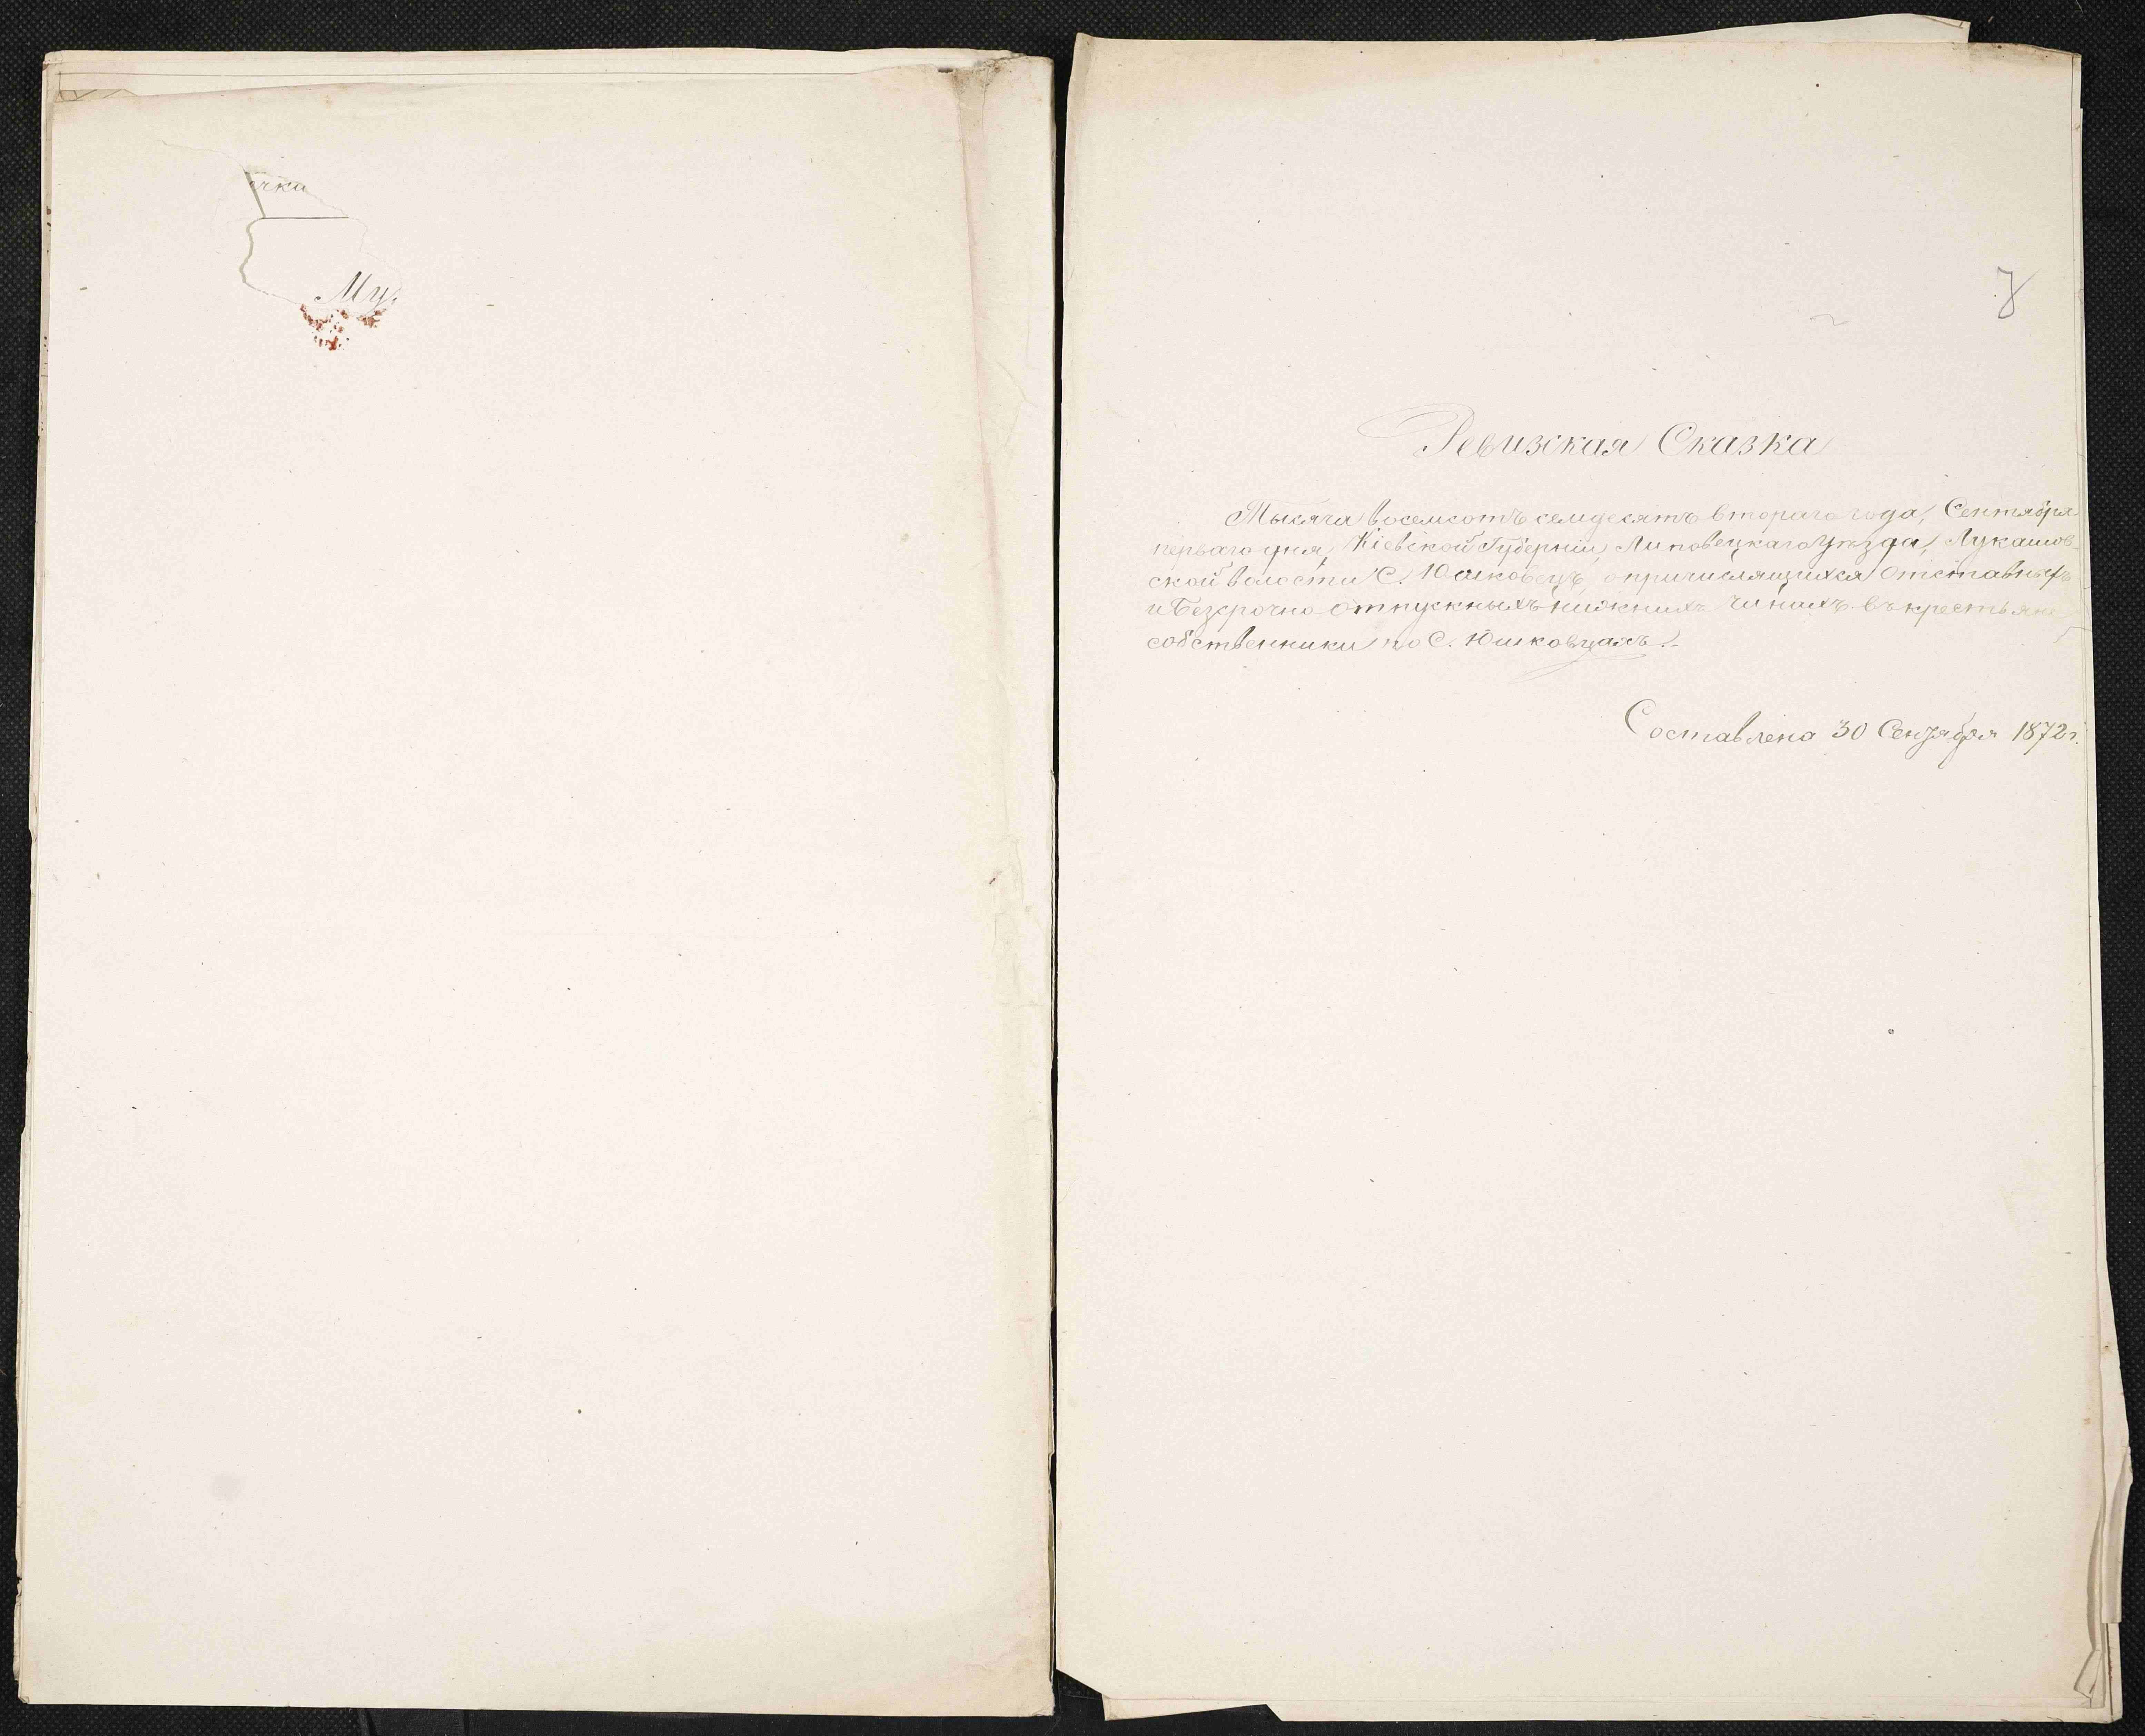 чка
Му
7
Ревизская Сказка
Тысяча восемсотъ семдесятъ втораго года, Сентября
перваго дня, Кіевской Губерніи, Липовецкаго Уезда, Лукашов-
ской волости С. Юшковецъ, о причислящихся Отставныхъ
и Безсрочно отпускныхъ нижнихъ Чинахъ въ крестьяне
собственники по С. Юшковцахъ.
Составлена 30 Сентября 1872 г.